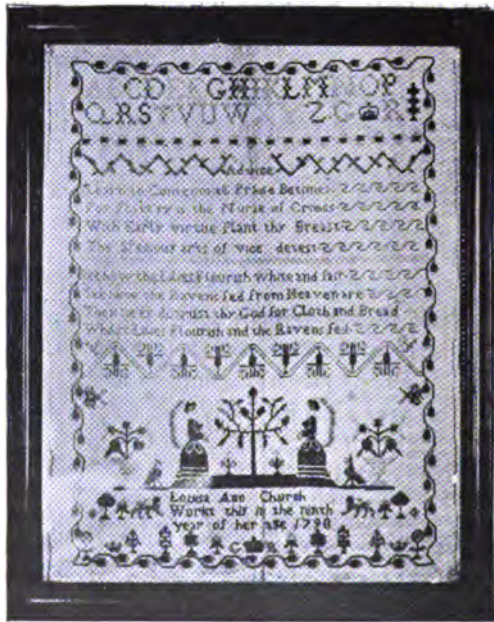 CD GHIKLMNOP
QRSTVUW Z G R
Advice
to Contemn all Praise Betimes
For Flattery is the Nurse of Crimes
With Early virtue Plant thy Breast
The arts of vice detest
how the Lilies Flourish White and fair
See how the Ravens fed from Heaven are
Then neer distrust thy God for Cloth and Bread
Whilst Lilies Flourish and the Ravens fed
Louisa Ann Church
Workt this in the ninth
year of her age 1790
G R